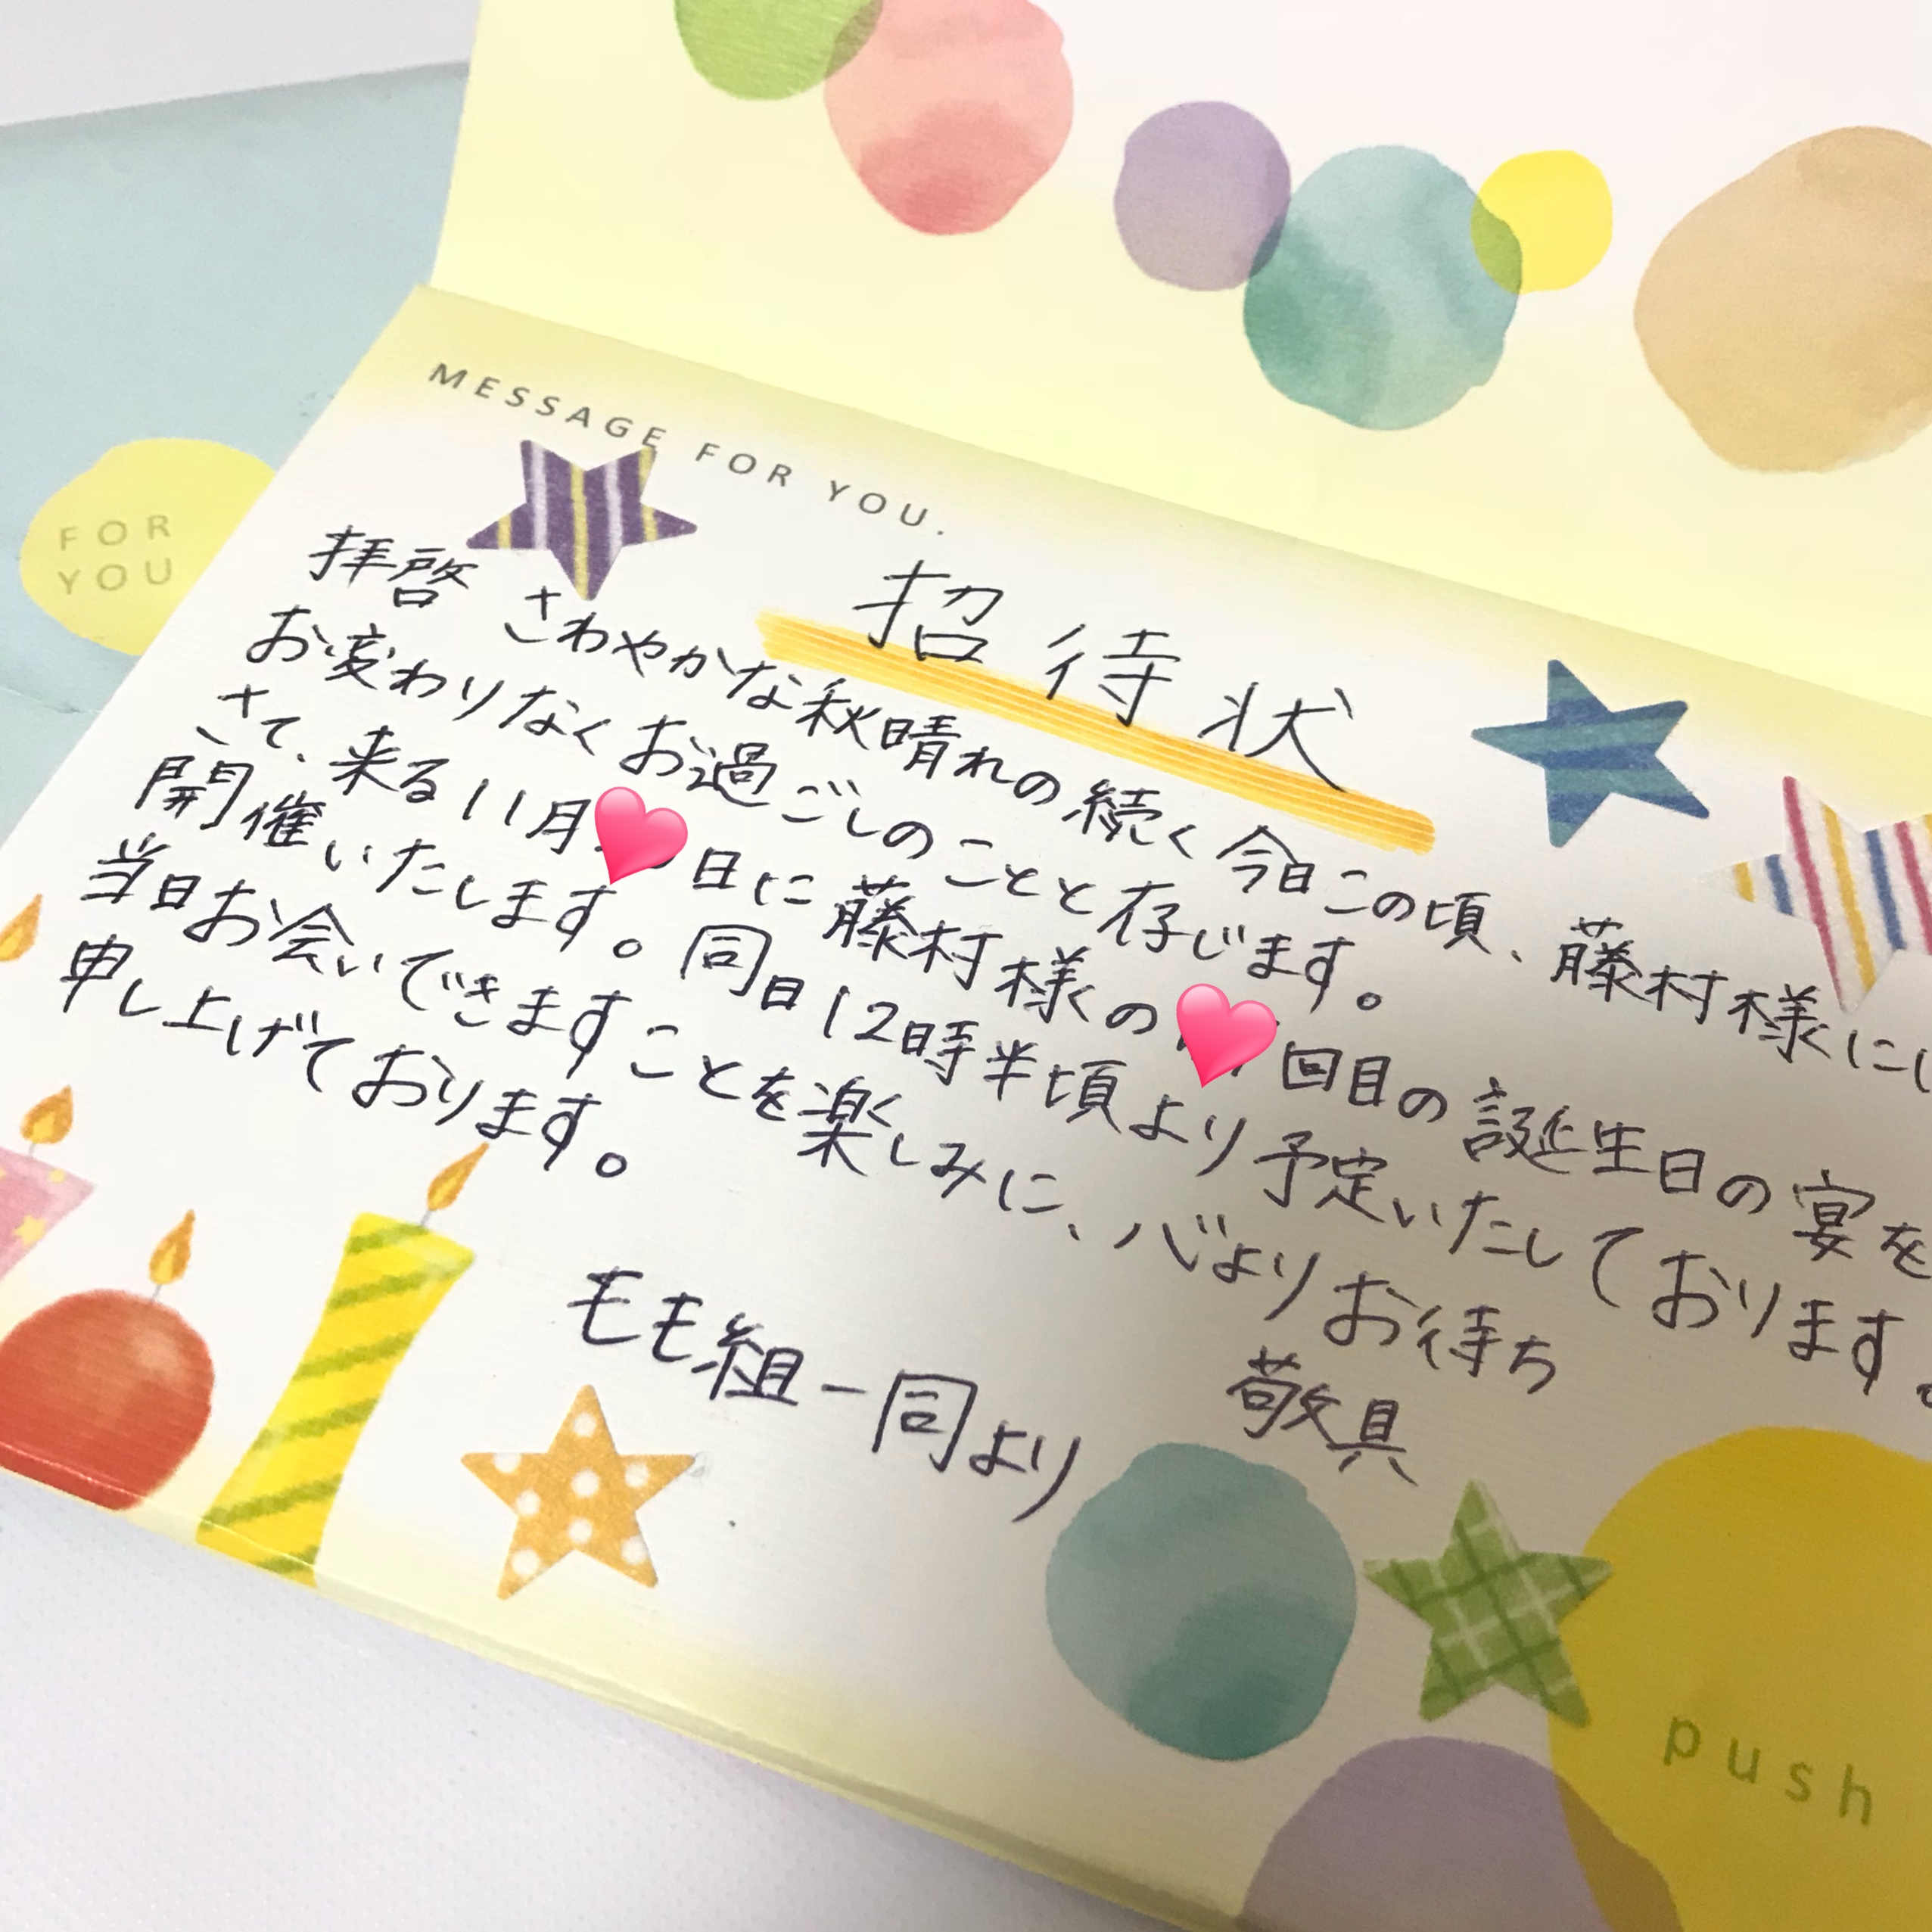 MESSAGE FOR YOU.
FOR
YOU
招待状
拝啓 さわやかな秋晴れの続く今日この頃、藤村様に
お変わりなくお過ごしのことと存じます。
さて、来る11月 日に藤村様の 回目の誕生日の宴を
開催いたします。同日12時半頃より予定いたしております。
当日お会いできますことを楽しみに、心よりお待ち
申し上げております。
敬具
モモ組一同より
push